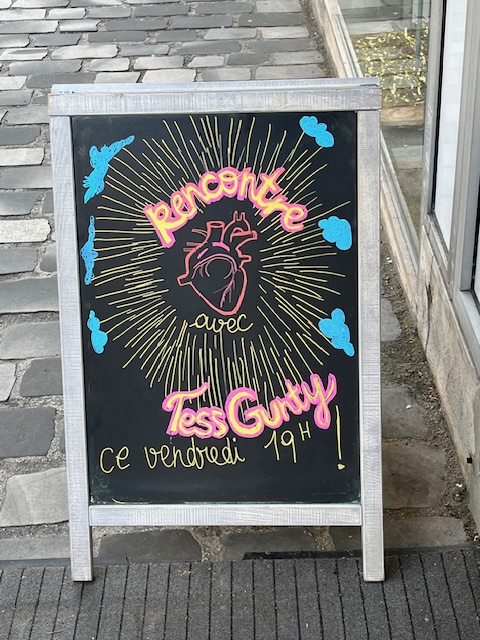 Rencontre
avec
Tess Gunty
ce vendredi 19H !